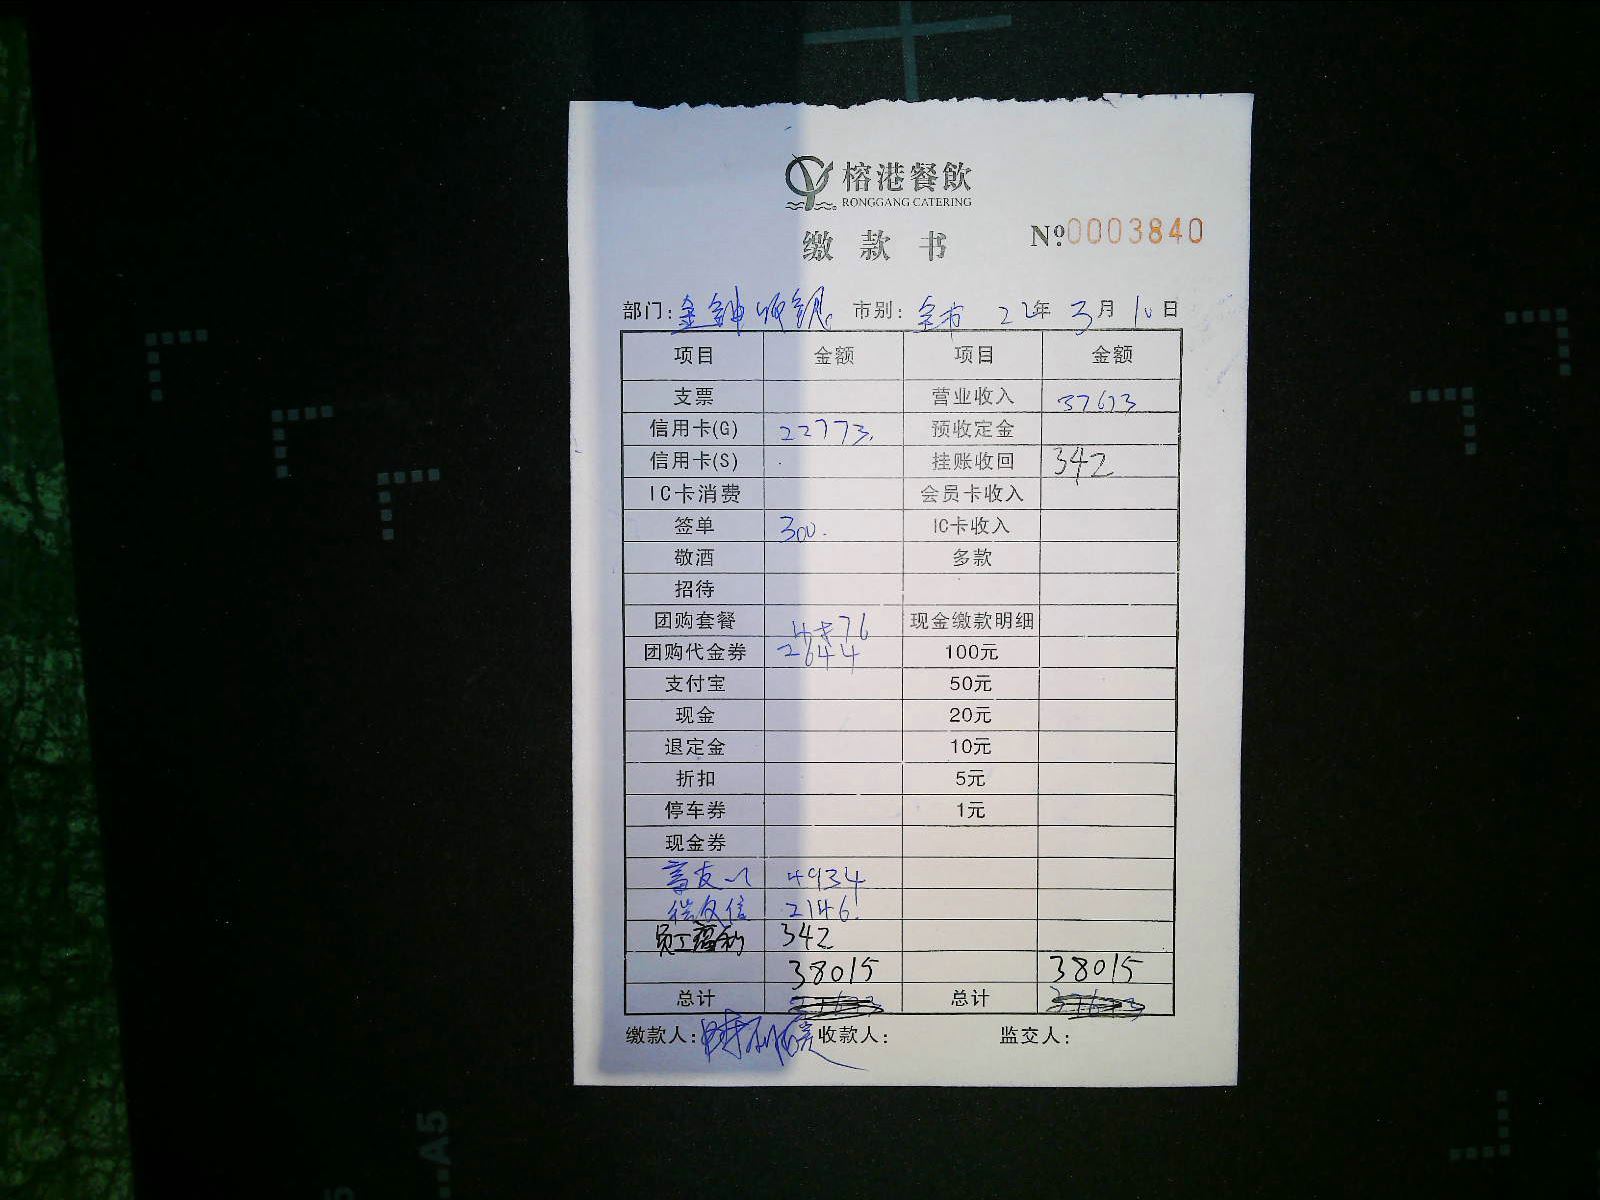 榕港餐飲
RONGGANG CATERING
缴款书
Nº:0003840
部门: 市别: 全市 22年 3月 10日
项目 金额 项目 金额
支票 营业收入 37673
信用卡(G) 22773. 预收定金
信用卡(S) 挂账收回 342
IC卡消费 会员卡收入
签单 300. IC卡收入
敬酒 多款
招待
团购套餐 4876 现金缴款明细
团购代金券 2644 100元
支付宝 50元
现金 20元
退定金 10元
折扣 5元
停车券 1元
现金券
富友 4934
2146.
员工福利 342
38015 38015
总计 总计
缴款人: 收款人: 监交人:
A5